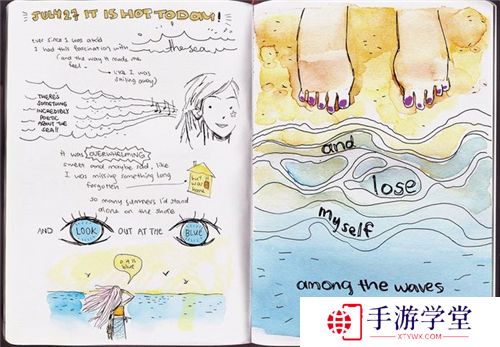 JULY 27 IT IS HOT TODAY!
Ever since I was a kid
I had this fascination with
the sea
(and the way it made me
feel
LIKE I WAS
sailing away)
THERE'S
SOMETHING
INCREDIBLY
POETIC
ABOUT THE
SEA!!
It was OVERWHELMING
sweet and maybe sad, like
I was missing something long
forgotten
but it
was
home
so many summers I'd stand
alone on the shore
AND LOOK OUT AT THE BLUE
blue
and
lose
myself
among the waves
手游学堂
XTYWX.COM